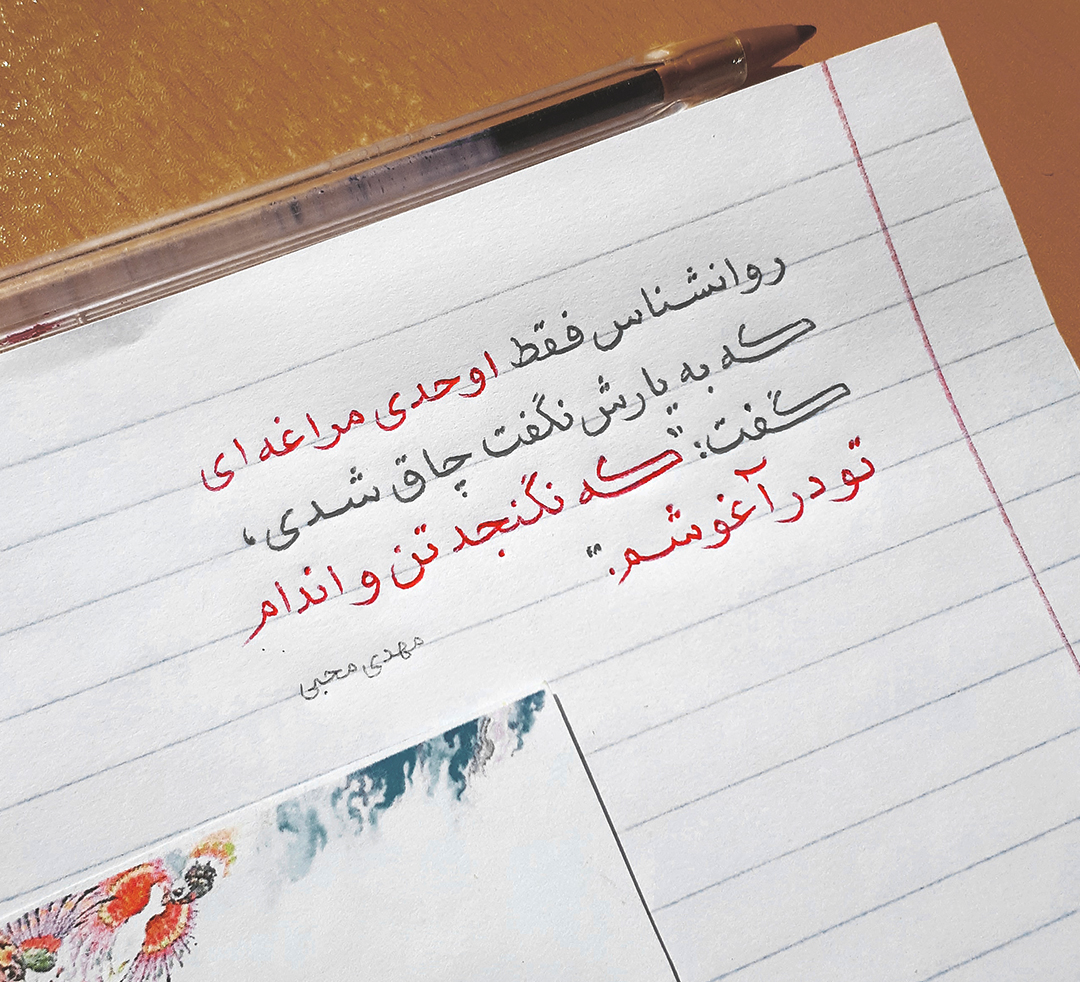 روانشناس فقط اوحدی مراغه ای
که به یارش نگفت چاق شدی،
گفت: "که نگنجد تن و اندام
تو در آغوشم."
مهدی محبی